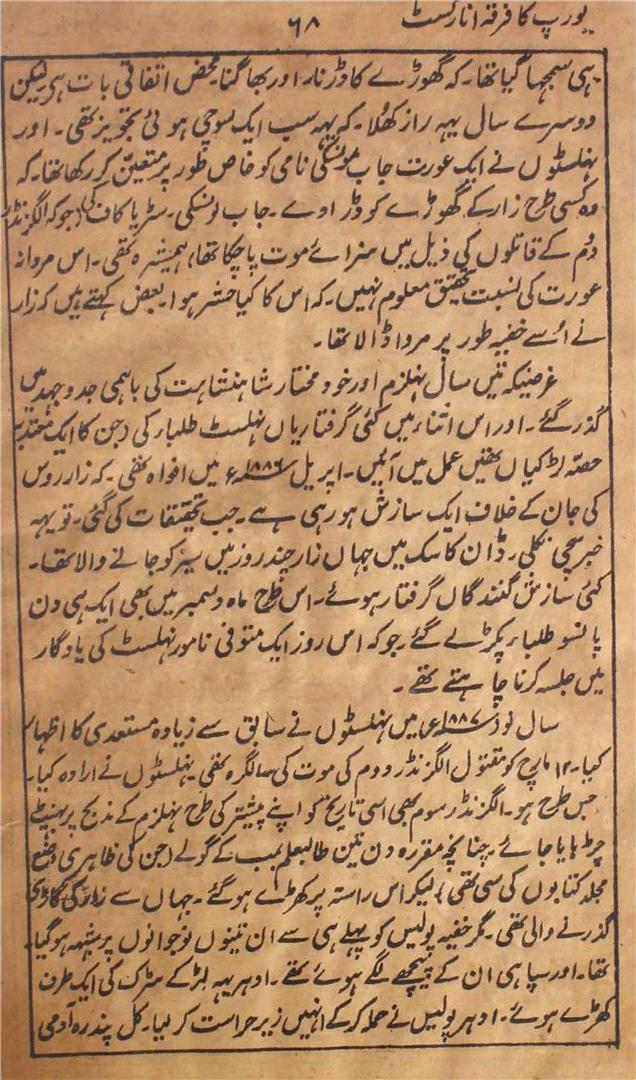 یورپ کا فرقہ انارکسٹ
۶۸
یہی سمجھا گیا تھا۔ کہ گھوڑے کا ڈرنا۔ اور بھاگنا۔ محض اتفاقی بات ہی لیکن
دوسرے سال یہہ راز کھلا۔ کہ یہہ سب ایک سوچی ہوئی تجویز تھی۔ اور
نہلسٹوں نے ایک عورت جاب مونسکی نامی کو خاص طور پر متعین کر رکھا تھا۔ کہ
وہ کسی طرح زار کے گھوڑے کو ڈراوے۔ جاب لونسکی۔ سٹریاکاف کی (جو کہ الگزنڈر
دوم کے قاتلوں کی ذیل میں سزائے موت پا چکا تھا، ہمشیرہ تھی۔ اس مردانہ
عورت کی نسبت تحقیق معلوم نہیں۔ کہ اس کا کیا حشر ہوا۔ بعض کہتے ہیں کہ زار
نے اُسے خفیہ طور پر مروا ڈالا تھا۔
غرضیکہ تین سال نہلزم اور خود مختار شاہنشاہت کی باہمی جدوجہد میں
گذر گئے۔ اور اس اثناء میں کئی گرفتاریاں نہلسٹ طلباء کی (جن کا ایک معتدبہ
حصہ لڑکیاں تھیں عمل میں آئیں۔ اپریل ۱۸۸۶ء میں افواہ تھی۔ کہ زار روس
کی جان کے خلاف ایک سازش ہو رہی ہے۔ جب تحقیقات کی گئی۔ تو یہہ
خبر سچی نکلی۔ ڈان کاسک میں جہاں زار چند روز میں سیر کو جانے والا تھا۔
کئی سازش کنندگاں گرفتار ہوئے۔ اس طرح ماہ دسمبر میں بھی ایک ہی دن
پانسو طلباء پکڑے گئے۔ جو کہ اس روز ایک متوفی نامور نہلسٹ کی یادگار
میں جلسہ کرنا چاہتے تھے۔
سال نو ۱۸۸۷ء میں نہلسٹوں نے سابق سے زیادہ مستعدی کا اظہار
کیا۔ ۱۳ مارچ کو مقتول الگزنڈر دوم کی موت کی سالگرہ تھی۔ نہلسٹوں نے ارادہ کیا۔
جس طرح ہو۔ الگزنڈر سوم بھی اسی تاریخ کو اپنے پیشتر کی طرح نہلزم کے مذبح پر بھینٹ
چڑہایا جائے۔ چنانچہ مقررہ دن تین طالبعلم بمب کے گولے (جن کی ظاہری وضع
مجلد کتابوں کی سی تھی) لیکر اس راستہ پر کھڑے ہو گئے۔ جہاں سے زار کی گاڑی
گذرنے والی تھی۔ مگر خفیہ پولیس کو پہلے ہی سے ان تینوں نوجوانوں پر شبہہ ہو گیا
تھا۔ اور سپاہی ان کے پیچھے لگے ہوئے تھے۔ ادہر یہہ لڑکے سڑک کی ایک طرف
کھڑے ہوئے۔ ادہر پولیس نے حملہ کر کے انہیں زیر حراست کر لیا۔ کل پندرہ آدمی